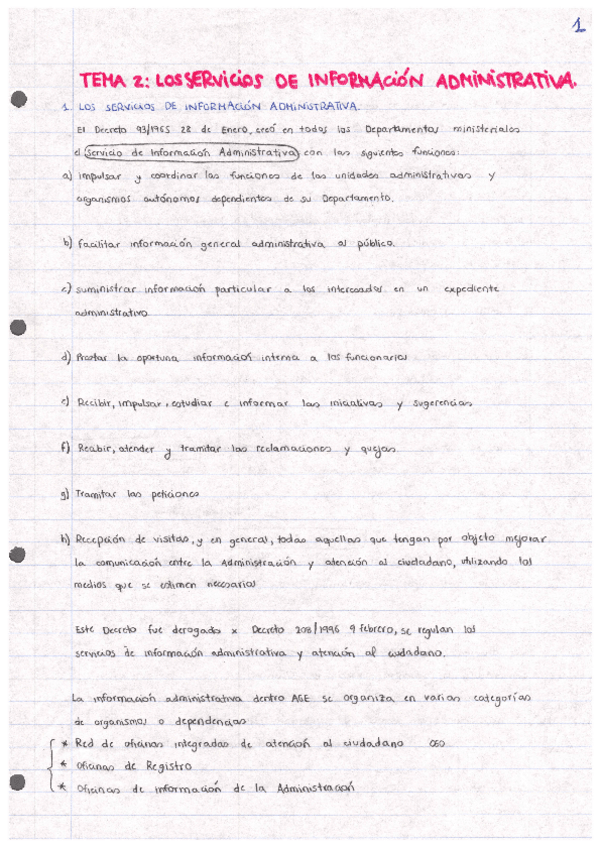 1
TEMA 2: LOS SERVICIOS DE INFORMACIÓN ADMINISTRATIVA.
1. LOS SERVICIOS DE INFORMACIÓN ADMINISTRATIVA.
El Decreto 93/1965 28 de Enero, creó en todos los Departamentos ministeriales
el Servicio de Información Administrativa con las siguientes funciones:
a) impulsar y coordinar las funciones de las unidades administrativas y
organismos autónomos dependientes de su Departamento.
b) facilitar información general administrativa al público.
c) suministrar información particular a los interesados en un expediente
administrativo
d) Prestar la oportuna información interna a los funcionarios
e) Recibir, impulsar, estudiar e informar las iniciativas y sugerencias
f) Recibir, atender y tramitar las reclamaciones y quejas
g) Tramitar las peticiones
h) Recepción de visitas, y en general, todas aquellas que tengan por objeto mejorar
la comunicación entre la Administración y atención al ciudadano, utilizando los
medios que se estimen necesarios
Este Decreto fue derogado x Decreto 208/1996 9 febrero, se regulan los
servicios de información administrativa y atención al ciudadano.
La información administrativa dentro AGE se organiza en varias categorías
de organismos o dependencias
* Red de oficinas integradas de atención al ciudadano 060
* Oficinas de Registro
* Oficinas de información de la Administración